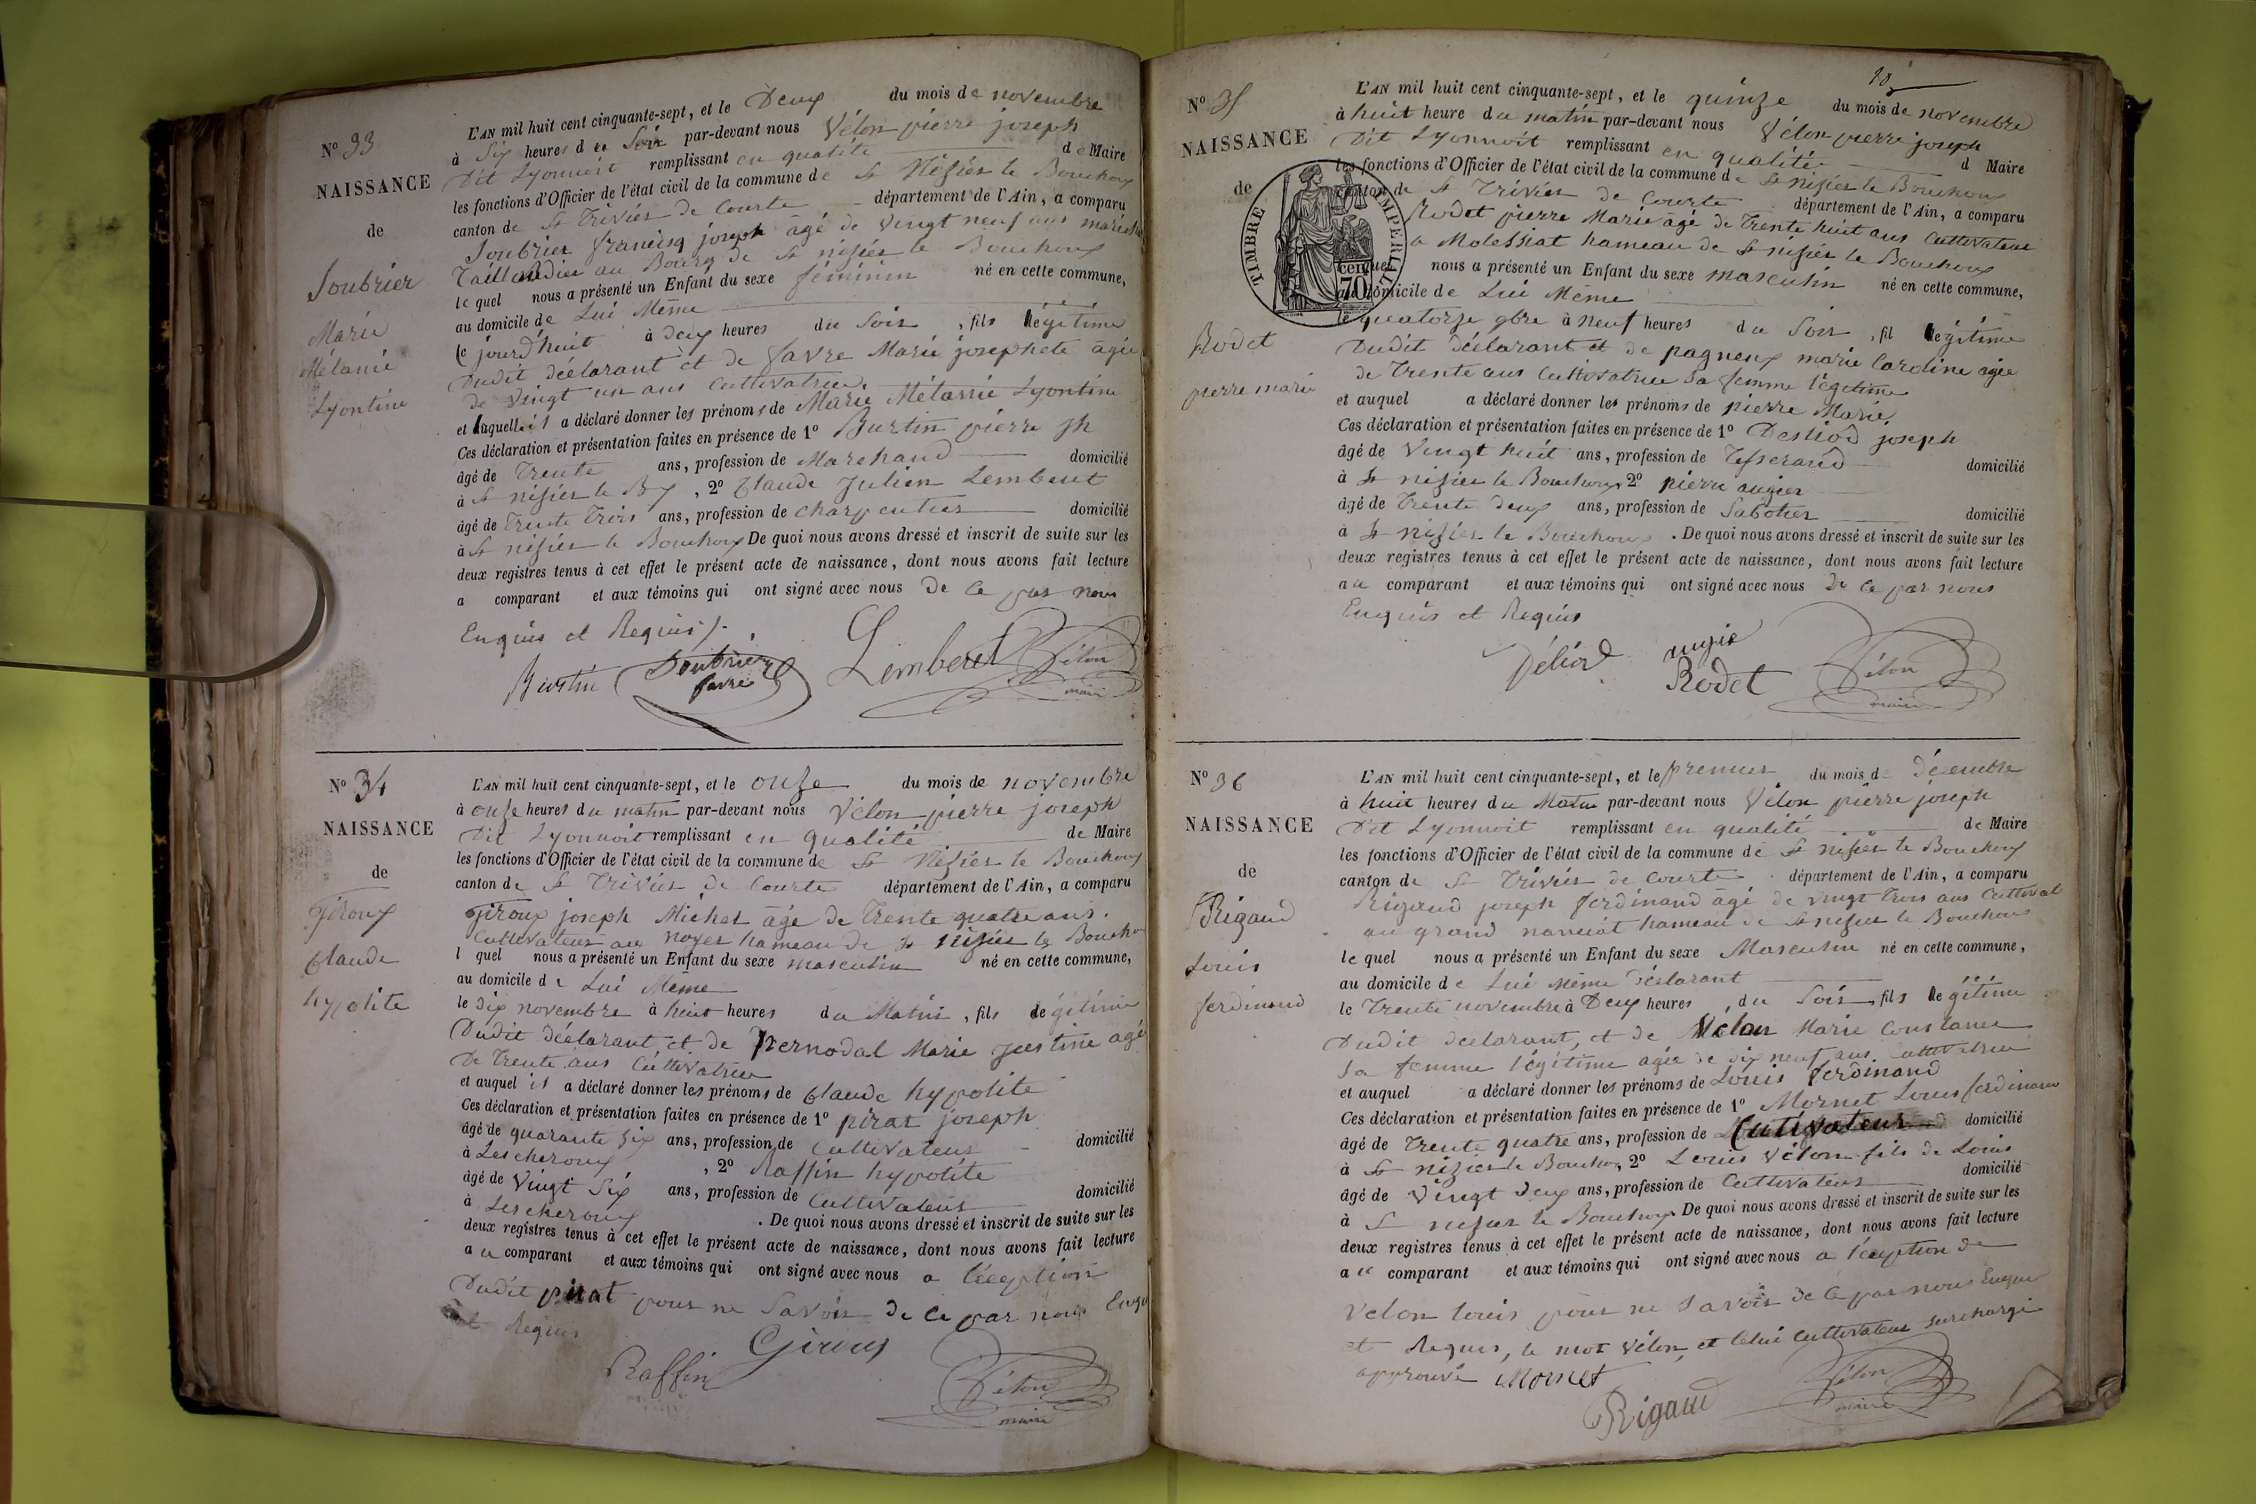 N° 33
NAISSANCE
de
Soubrier
Marie
Mélanie
Lyontine
L'AN mil huit cent cinquante-sept, et le Deux du mois de novembre
à Six heures du Soir par-devant nous Vélon pierre joseph
Dit Lyonnoit remplissant en qualité de Maire
les fonctions d'Officier de l'état civil de la commune de St Nisier le Bouchoux
canton de St Trivier de Courte département de l'Ain, a comparu
Soubrier françisq joseph âgé de vingt neuf ans maréchal
Taillandier au Bourg de St nisier le Bouchoux
le quel nous a présenté un Enfant du sexe féminin né en cette commune,
au domicile de Lui Même
le jourd'huit à deux heures du Soir, fils légitime
Dudit déclarant et de favre Marie josephete agée
de vingt un ans cultivatrice
et auquelle il a déclaré donner les prénoms de Marie Mélanie Lyontine
Ces déclaration et présentation faites en présence de 1° Burtin pierre jh
âgé de Trente ans, profession de Marchand domicilié
à St nisier le Bx, 2° Claude Julien Lemberet
âgé de Trente Trois ans, profession de charpentier domicilié
à St nisier le Bouchoux De quoi nous avons dressé et inscrit de suite sur les
deux registres tenus à cet effet le présent acte de naissance, dont nous avons fait lecture
a comparant et aux témoins qui ont signé avec nous de ce par nous
Enquis et Requis
Burtin Soubrier Lemberet Vélon
favre maire
N° 34
NAISSANCE
de
Giroux
Claude
hypolite
L'AN mil huit cent cinquante-sept, et le onze du mois de novembre
à onze heures du matin par-devant nous Vélon pierre joseph
Dit Lyonnoit remplissant en qualité de Maire
les fonctions d'Officier de l'état civil de la commune de St Nisier le Bouchoux
canton de St Trivier de Courte département de l'Ain, a comparu
Giroux joseph Michel âgé de Trente quatre ans
Cultivateur au noyer hameau de St nisier le Boucho
l quel nous a présenté un Enfant du sexe masculin né en cette commune,
au domicile de Lui Même
le dix novembre à huit heures du Matin, fils légitime
Dudit déclarant et de pernodal Marie justine agé
De Trente ans Cultivatrice
et auquel il a déclaré donner les prénoms de Claude hypolite
Ces déclaration et présentation faites en présence de 1° pirat joseph
âgé de quarante six ans, profession de Cultivateur domicilié
à Lescheroux, 2° Raffin hypolite
âgé de Vingt Six ans, profession de Cultivateur domicilié
à Lescheroux. De quoi nous avons dressé et inscrit de suite sur les
deux registres tenus à cet effet le présent acte de naissance, dont nous avons fait lecture
au comparant et aux témoins qui ont signé avec nous a l'éception
Dudit pirat pour ne Savoir de ce par nous Enqu
et Requis
Raffin Giroux Vélon
maire
N° 35
NAISSANCE
de
Rodet
pierre marie
TIMBRE IMPERIAL
70
L'AN mil huit cent cinquante-sept, et le quinze du mois de novembre
à huit heure du matin par-devant nous Vélon pierre joseph
Dit Lyonnoit remplissant en qualitée d Maire
les fonctions d'Officier de l'état civil de la commune de St nisier le Bouchoux
canton de St Trivier de Courte département de l'Ain, a comparu
Rodet pierre Marie âgé de Trente huit ans Cultivateur
a Molessiat hameau de St nisier le Bouchoux
lequel nous a présenté un Enfant du sexe masculin né en cette commune,
au domicile de Lui Même
le quatorze 9bre à Neuf heures du Soir, fil légitime
Dudit déclarant et de pagneux marie Caroline agée
de Trente ans Cultivatrice Sa femme légitime
et auquel a déclaré donner les prénoms de pierre Marie
Ces déclaration et présentation faites en présence de 1° Destiod joseph
âgé de Vingt huit ans, profession de Tisserand domicilié
à St nisier le Bouchoux 2° pierre augier
âgé de Trente deux ans, profession de Sabotier domicilié
à St nisier le Bouchoux. De quoi nous avons dressé et inscrit de suite sur les
deux registres tenus à cet effet le présent acte de naissance, dont nous avons fait lecture
au comparant et aux témoins qui ont signé avec nous de ce par nous
Enquis et Requis
augie
Rodet Vélon
maire
N° 36
NAISSANCE
de
Rigaud
Louis
ferdinand
L'AN mil huit cent cinquante-sept, et le premier du mois d décembre
à huit heures du Matin par-devant nous Vélon pierre joseph
Dit Lyonnoit remplissant en qualité de Maire
les fonctions d'Officier de l'état civil de la commune de St nisier le Bouchoux
canton de St Trivier de Courte département de l'Ain, a comparu
Rigaud joseph ferdinand âgé de vingt trois ans Cultivat
au grand nanciat hameau de St nisier le Bouchoux
le quel nous a présenté un Enfant du sexe Masculin né en cette commune,
au domicile de Lui Même déclarant
le Trente novembre à Deux heures du Soir, fils légitime
Dudit déclarant, et de Vélon Marie Constance
Sa femme légitime agée de dix neuf ans cultivatrice
et auquel a déclaré donner les prénoms de Louis ferdinand
Ces déclaration et présentation faites en présence de 1° Mornet Louis ferdinand
âgé de Trente quatre ans, profession de Cultivateur domicilié
à St nizier le Bouchoux 2° Louis Vélon fils de Louis
âgé de Vingt deux ans, profession de Cultivateur domicilié
à St nisier le Bouchoux De quoi nous avons dressé et inscrit de suite sur les
deux registres tenus à cet effet le présent acte de naissance, dont nous avons fait lecture
au comparant et aux témoins qui ont signé avec nous a l'éception de
Velon louis pour ne Savoir de ce par nous Enquis
et Requis, le mot Vélon, et Celui Cultivateur surchargé
approuvé Mornet
Rigaud Vélon
maire